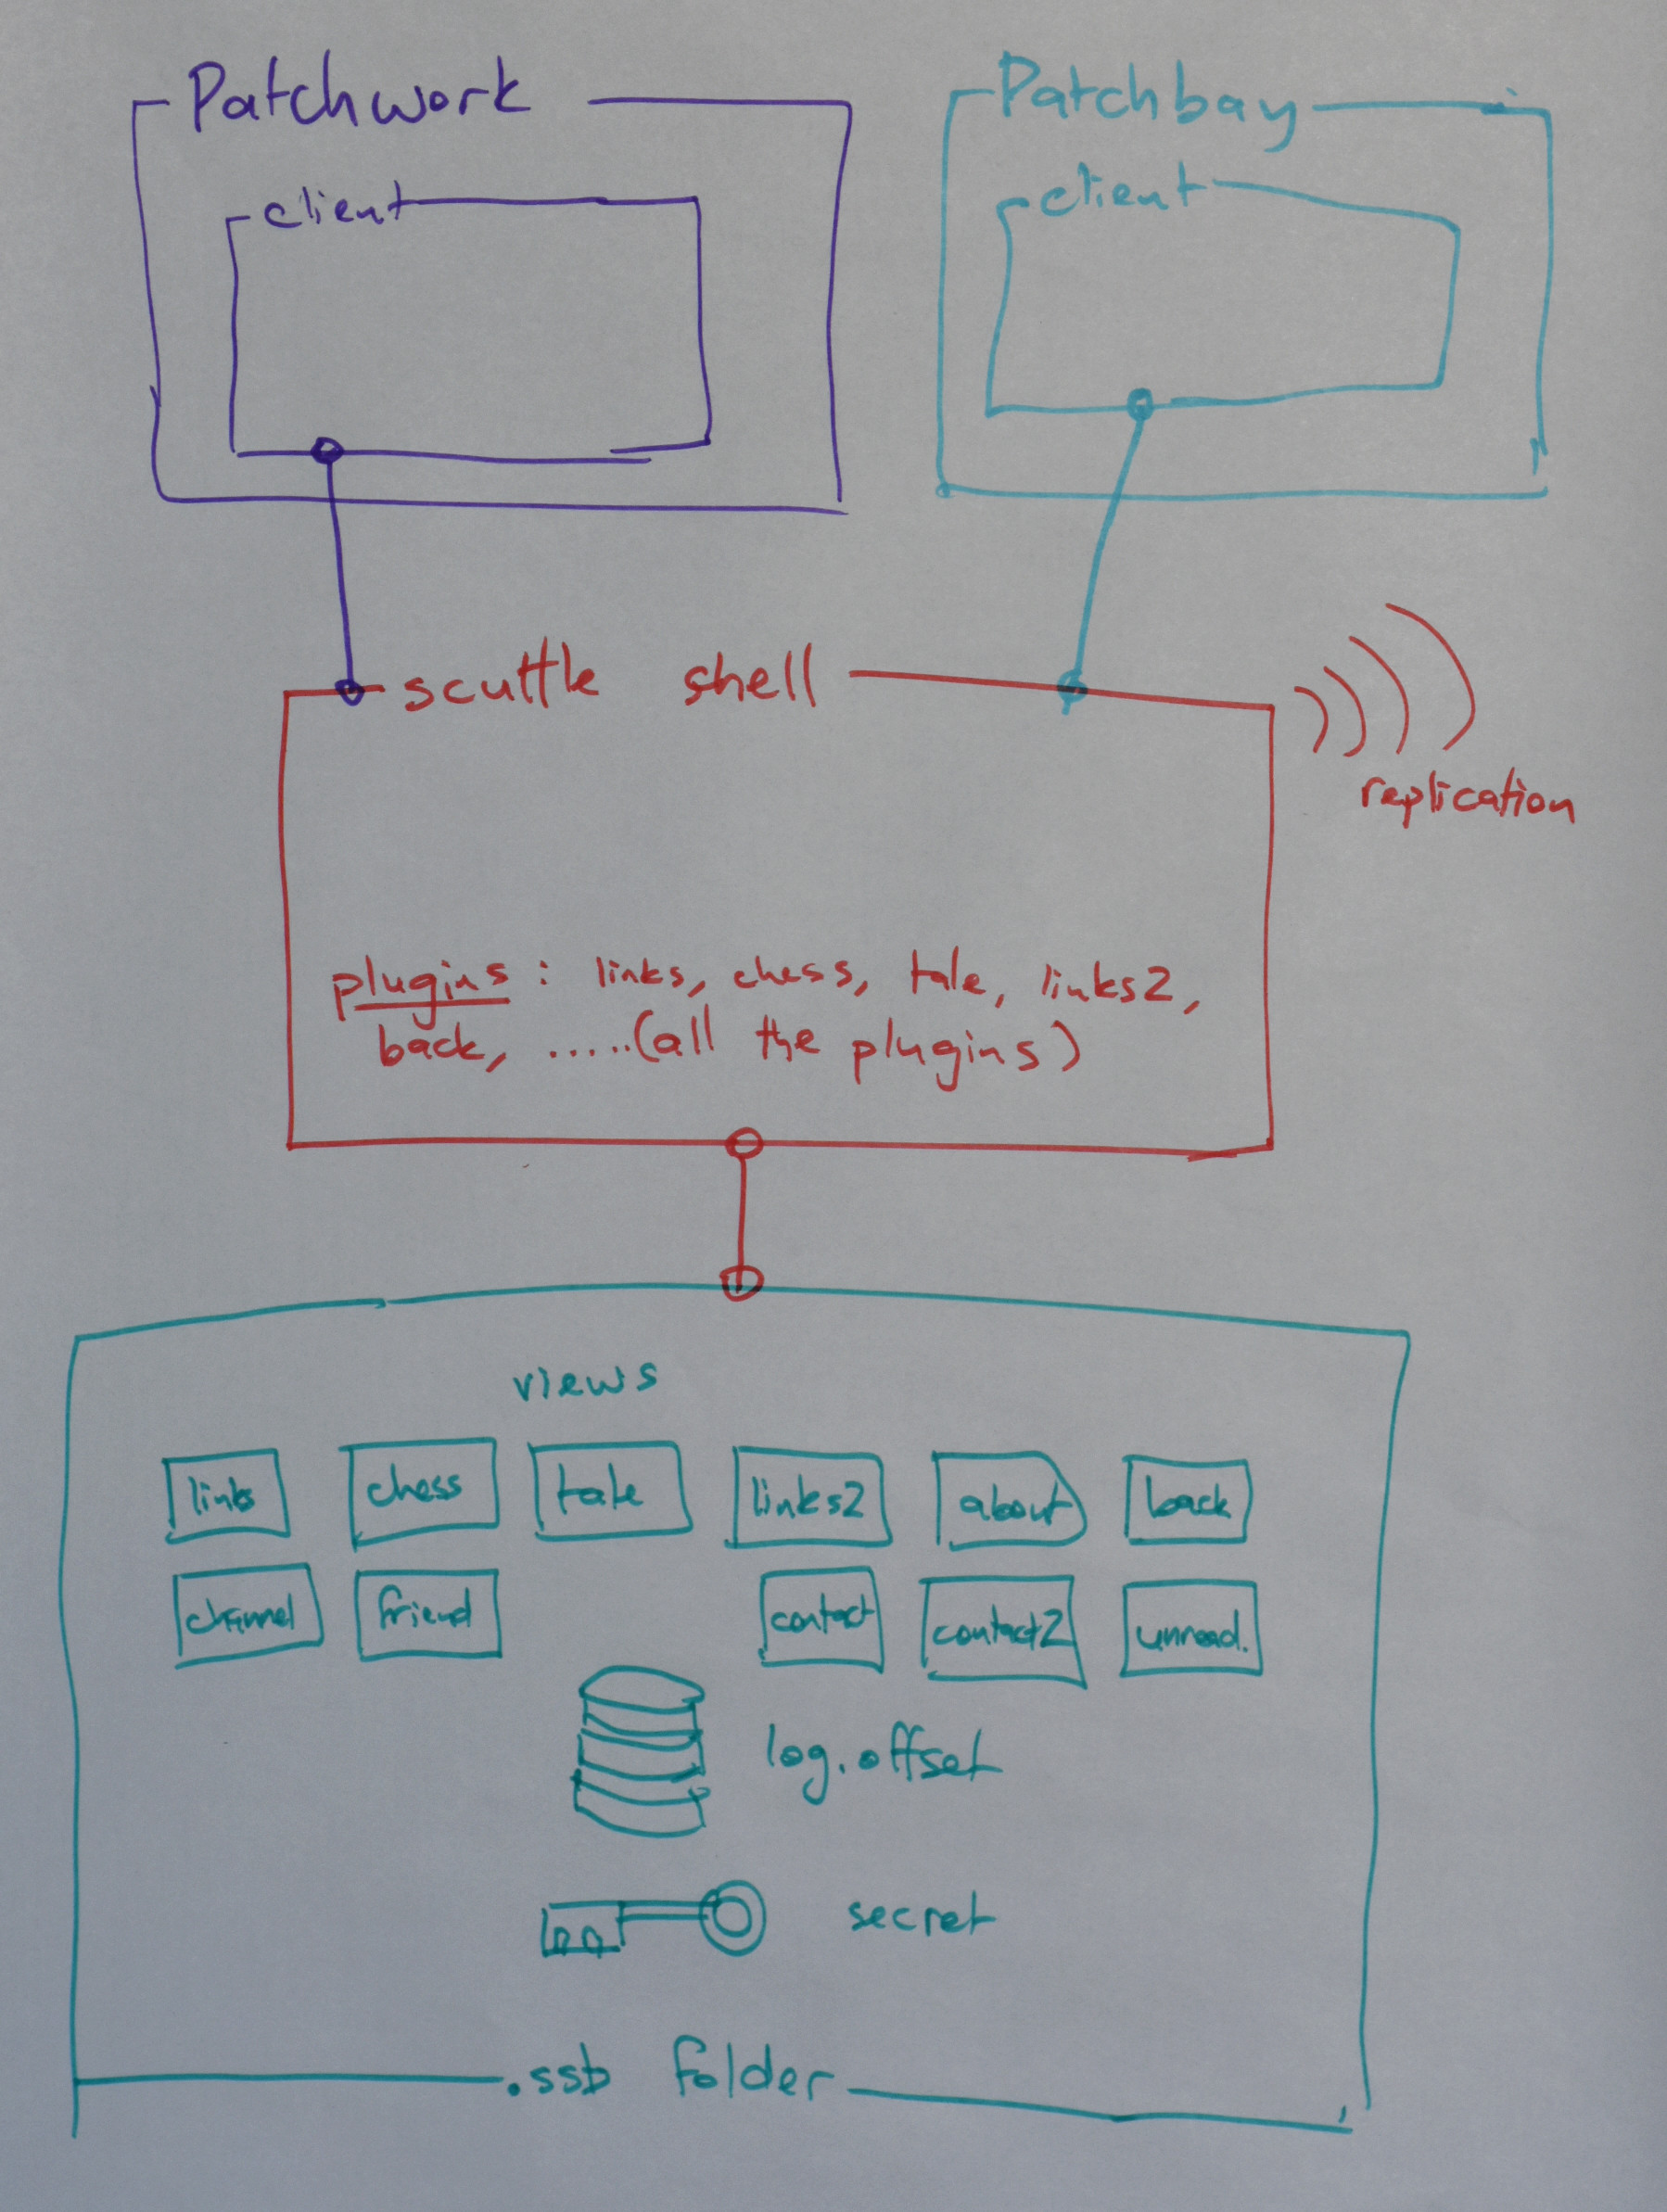 Patchwork
Patchbay
client
client
scuttle shell
replication
plugins: links, chess, tale, links2,
back, .....(all the plugins)
views
links
chess
tale
links2
about
back
channel
friend
contact
contact2
unread.
log.offset
secret
.ssb folder